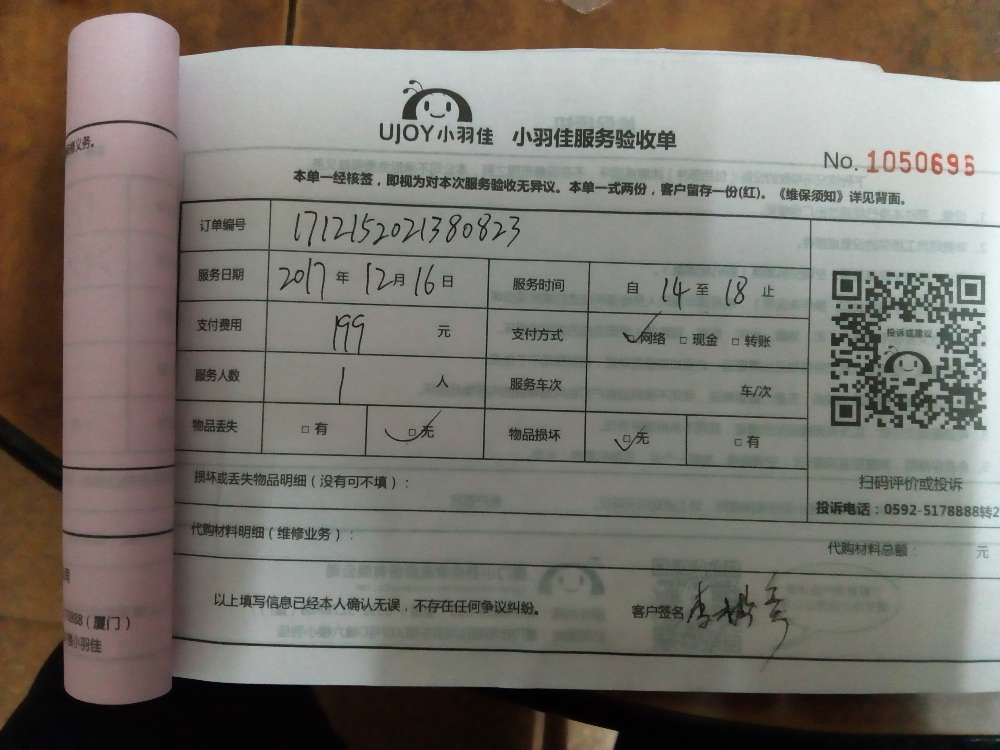 UJOY小羽佳 小羽佳服务验收单
No. 1050696
本单一经核签，即视为对本次服务验收无异议。本单一式两份，客户留存一份(红)。《维保须知》详见背面。
订单编号 1712152021380823
服务日期 2017 年 12 月 16 日 服务时间 自 14 至 18 止
支付费用 199 元 支付方式 □网络 □现金 □转账
服务人数 1 人 服务车次 车/次
物品丢失 □有 □无 物品损坏 □无 □有
投诉或建议
损坏或丢失物品明细（没有可不填）：
扫码评价或投诉
投诉电话：0592-5178888转2
代购材料明细（维修业务）： 代购材料总额： 元
以上填写信息已经本人确认无误，不存在任何争议纠纷。 客户签名
修义务。
（厦门）
小羽佳